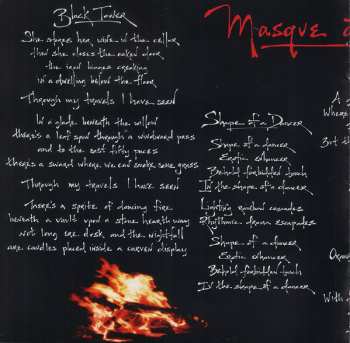 Black Tower
She stores her wine in the cellar
then she closes the oaken door
the iron hinges creaking
in a dwelling below the floor
Through my travels I have seen
In a glade beneath the willow
there's a leaf spun through a windward pass
and to the east fifty paces
there's a sward where we can smoke some grass
Through my travels I have seen
There's a sprite of dancing fire
beneath a vault upon a stone hearth way
not long ere dusk and the nightfall
are candles placed inside a carven display
Masque
Shape of a Dancer
Shape of a dancer
Erotic enhancer
Behold forbidden touch
In the shape of a dancer
Lighting rainbow cascades
Rhythmic drama escapades
Shape of a dancer
Erotic enhancer
Behold forbidden touch
In the shape of a dancer
A
Where
But th
With